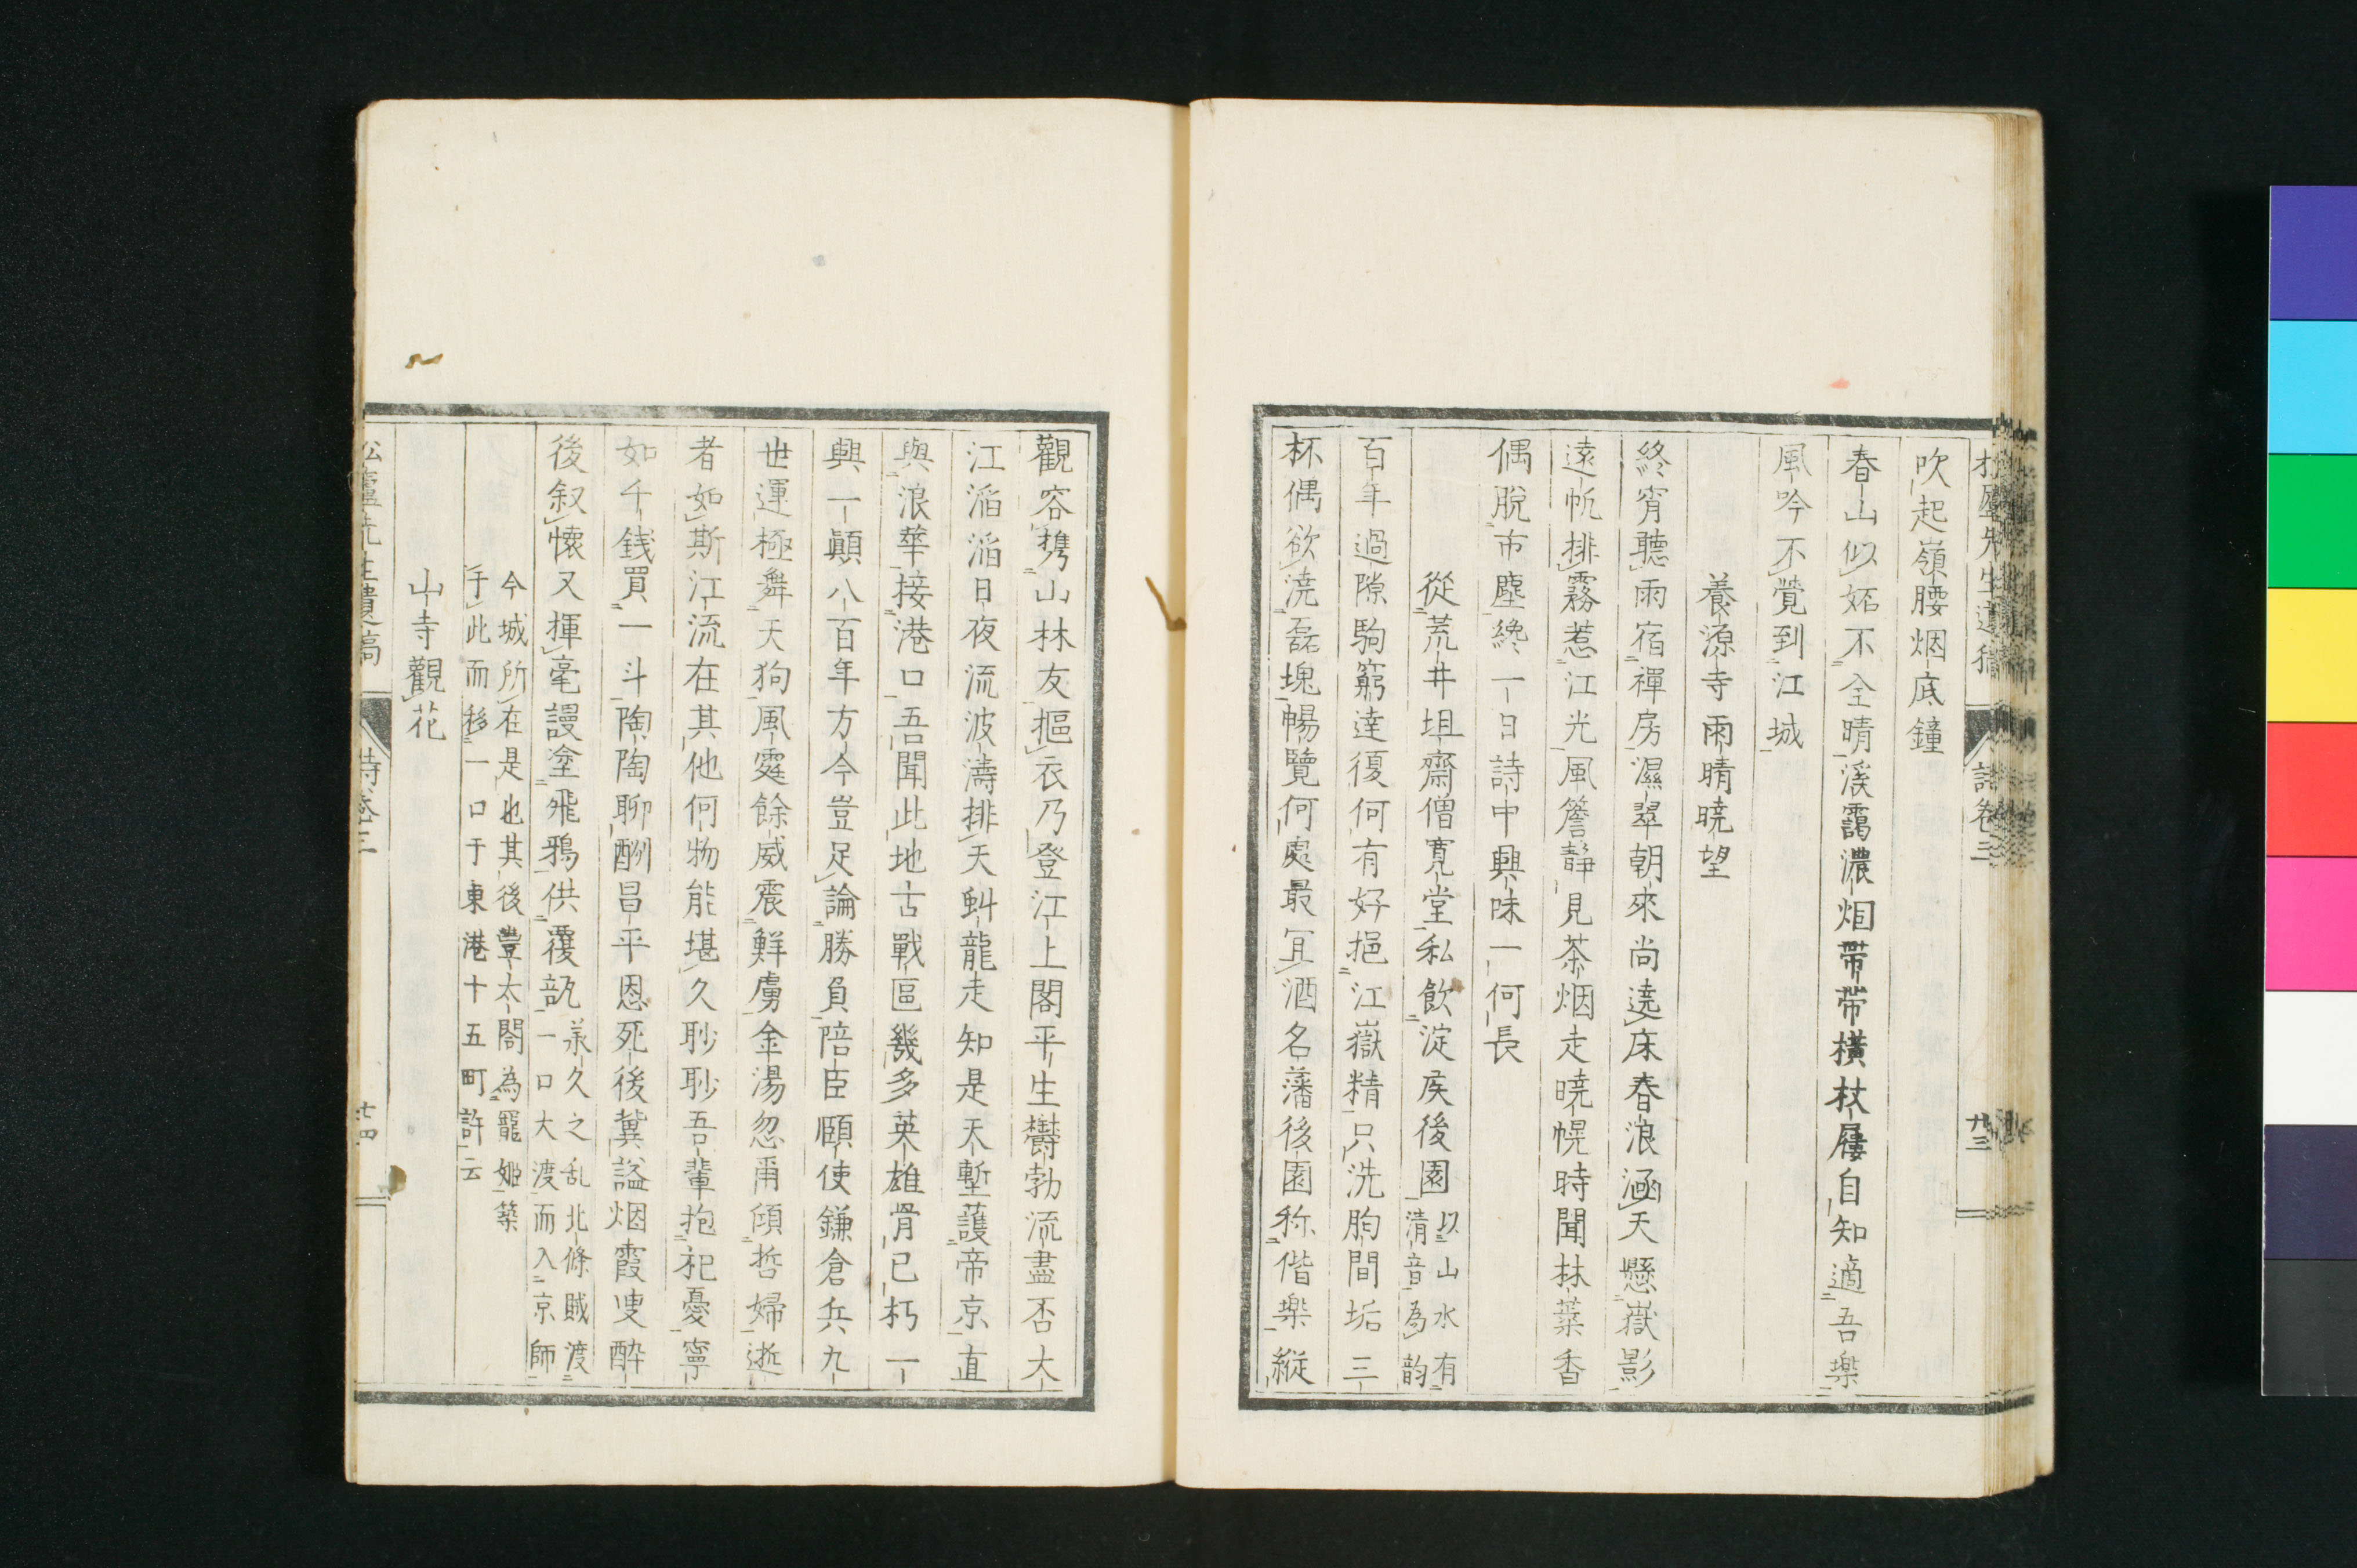 吹起嶺腰烟底鐘
春山似妬不全晴溪靄濃烟帶帶橫杖屨自知適吾楽
風吟不覺到江城
養源寺雨晴暁望
終宵聽雨宿禪房濕翠朝來尚遶床春浪涵天懸嶽影
遠帆排霧惹江光風簷靜見茶烟走暁幌時聞林蘂香
偶脫市塵纔一日詩中興味一何長
從荒井坦齋僧寛堂私飮淀矦後園以山水有
清音為韵
百年過隙駒窮達復何有好挹江嶽精只洗胸間垢三
杯偶欲澆磊塊暢覽何處最冝酒名藩後園称偕楽縦
觀容携山林友摳衣乃登江上閣平生欝勃流盡否大
江滔滔日夜流波濤排天虯龍走知是天塹護帝京直
與浪華接港口吾聞此地古戰區幾多英雄骨已朽一
興一顚八百年方今豈足論勝負陪臣頤使鎌倉兵九
世運極舞天狗風霆餘威震鮮虜金湯忽爾傾哲婦逝
者如斯江流在其他何物能堪久眇眇吾輩抱杞憂寧
如千銭買一斗陶陶聊酬昌平恩死後冀謚烟霞叟酔
後叙懷又揮毫謾塗飛鴉供覆瓿承久之乱北條賊渡
一口大渡而入京師
今城所在是也其後豊太閤為寵姬築
于此而移一口于東港十五町許云
山寺觀花
松廬先生遺稿
詩卷三
廿三
七四